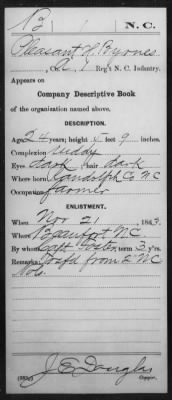 B | 1 | N. C.
Pleasant H. Byrnes
, Co. A, 1 Reg't N. C. Infantry.
Appears on
Company Descriptive Book
of the organization named above.
DESCRIPTION.
Age 24 years; height 5 feet 9 inches.
Complexion Ruddy
Eyes dark ; hair dark
Where born Randolph Co N C
Occupation farmer
ENLISTMENT.
When Nov 21 , 1863.
Where Beaufort N C
By whom Capt Foster ; term 3 y'rs.
Remarks: Trsfd from 2" NC
Vols.
J E Douglas
Copyist.